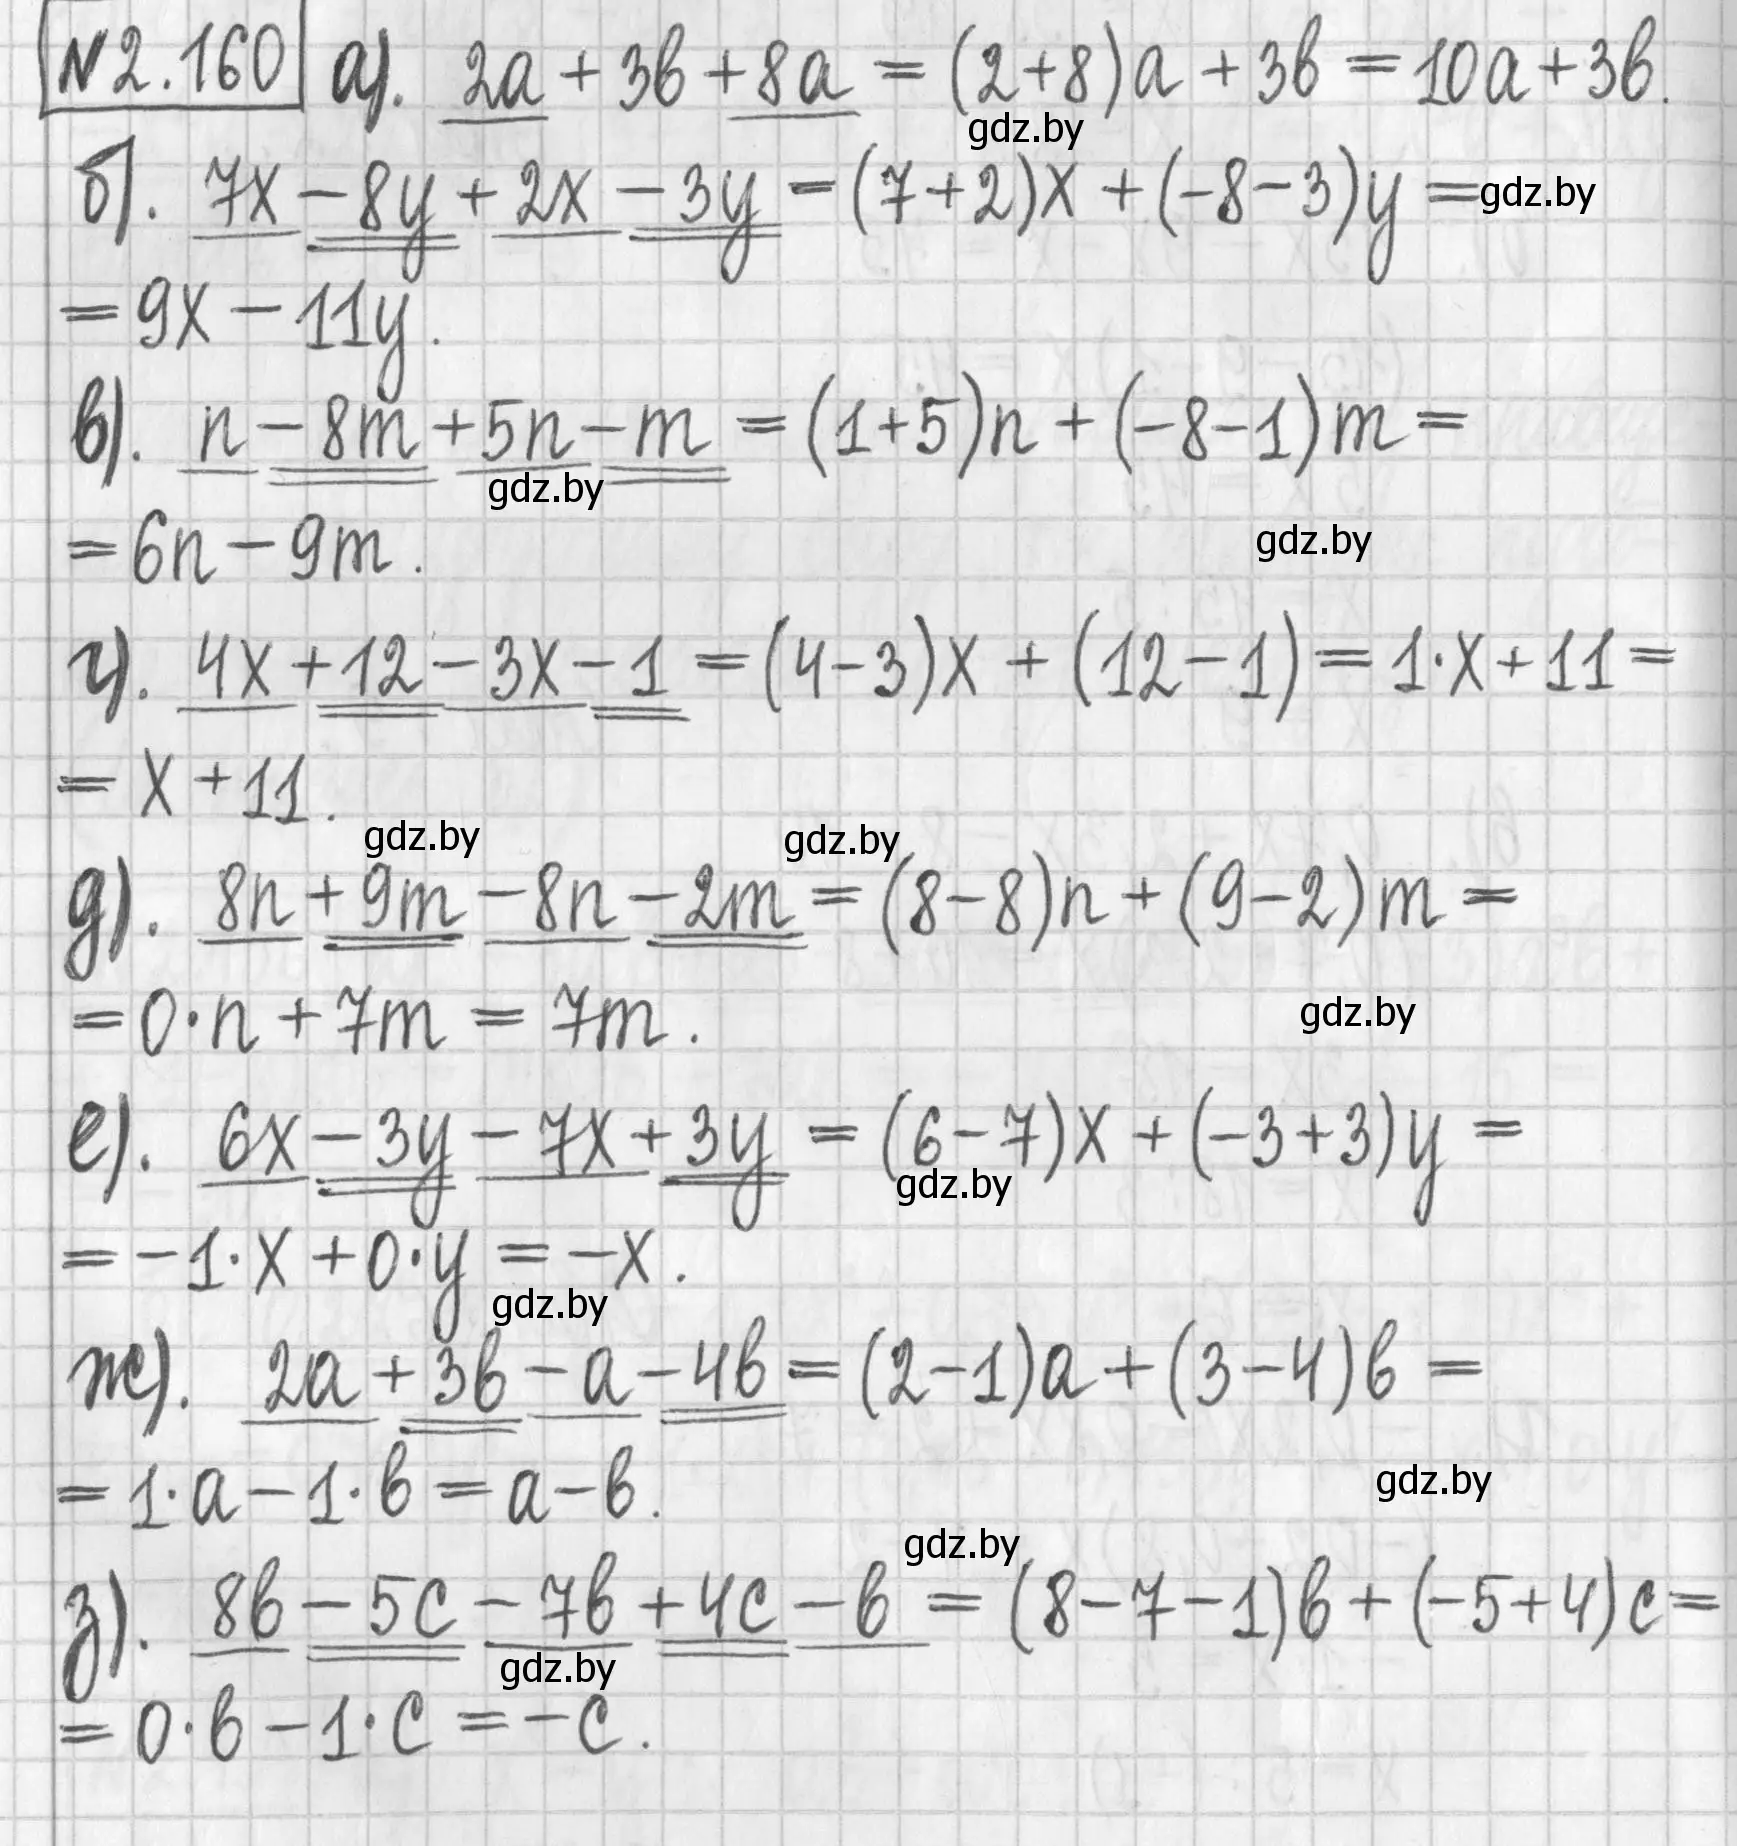 №2.160 а). 2a + 3b + 8a = (2+8)a + 3b = 10a + 3b.
gdz.by
б). 7x - 8y + 2x - 3y = (7+2)x + (-8-3)y = gdz.by
= 9x - 11y.
в). n - 8m + 5n - m = (1+5)n + (-8-1)m =
gdz.by
= 6n - 9m. gdz.by
г). 4x + 12 - 3x - 1 = (4-3)x + (12-1) = 1·x + 11 =
= x + 11.
gdz.by gdz.by
д). 8n + 9m - 8n - 2m = (8-8)n + (9-2)m =
= 0·n + 7m = 7m. gdz.by
е). 6x - 3y - 7x + 3y = (6-7)x + (-3+3)y =
gdz.by
= -1·x + 0·y = -x.
gdz.by
ж). 2a + 3b - a - 4b = (2-1)a + (3-4)b =
= 1·a - 1·b = a - b. gdz.by
gdz.by
з). 8b - 5c - 7b + 4c - b = (8-7-1)b + (-5+4)c =
gdz.by
= 0·b - 1·c = -c.